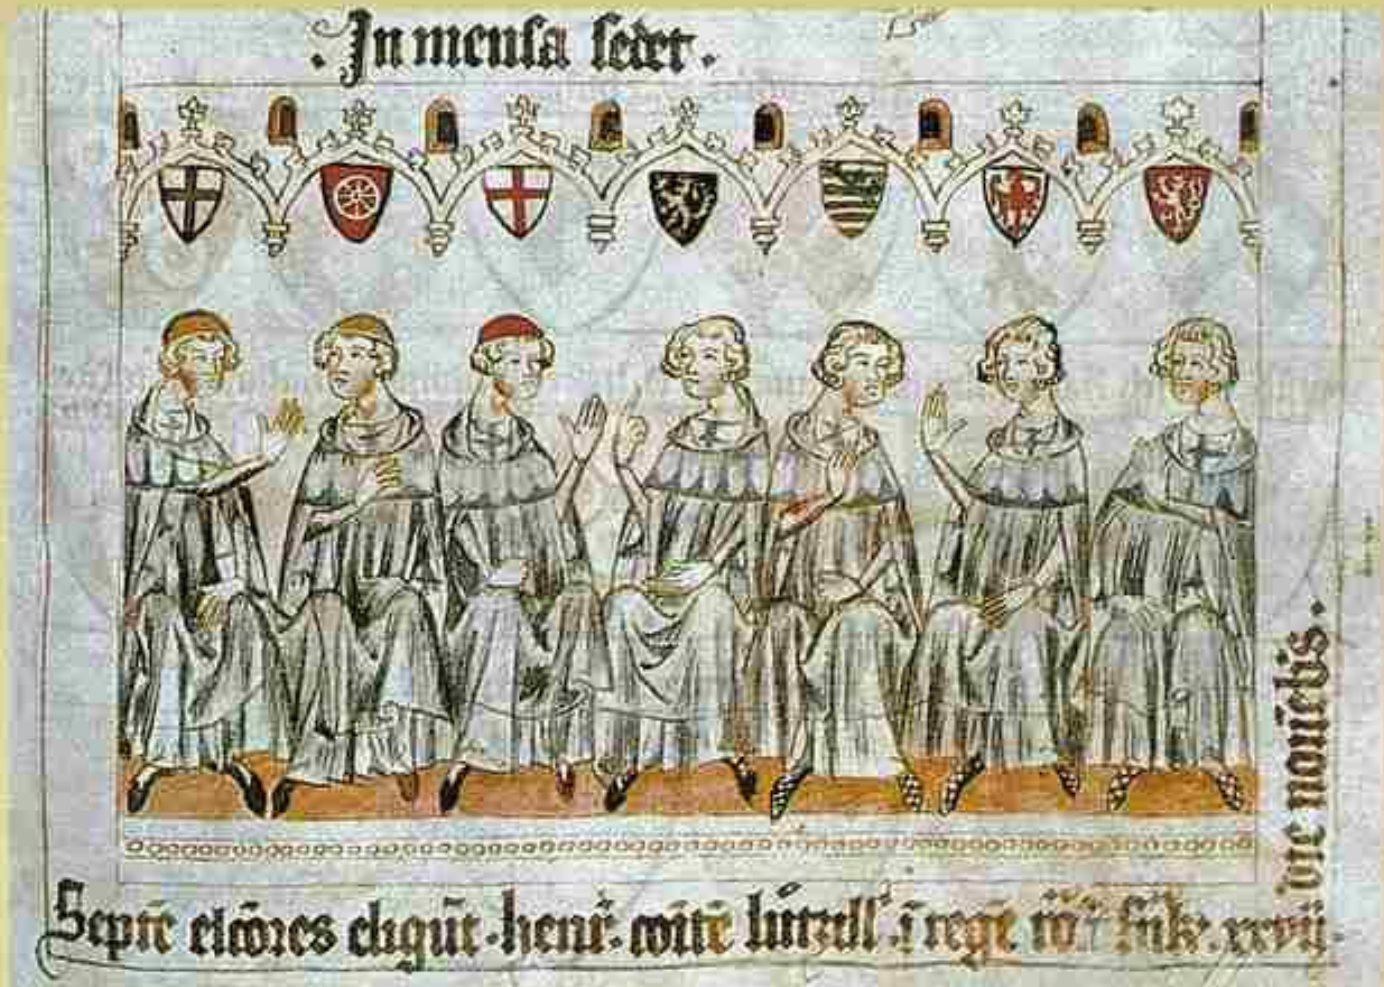 . In mensa sedet .
Septē elc̄ores eligūt · henr̄ · com̄itē luc̄zill' · ī regē rō ī frāk · xxvij ·
die novēbis ·